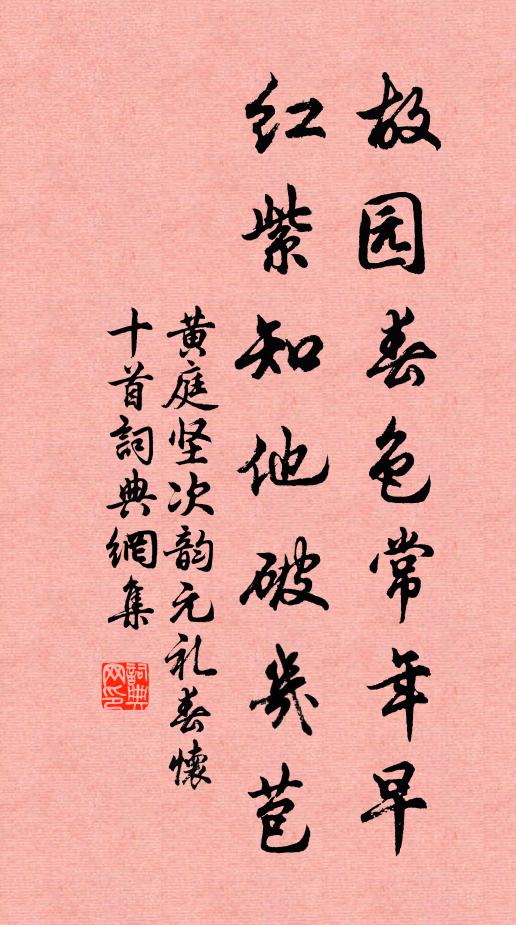 故园春色常年早
红紫知他破幾苞
黄庭坚次韵元礼春懷
十首詞典網集
詞典网印